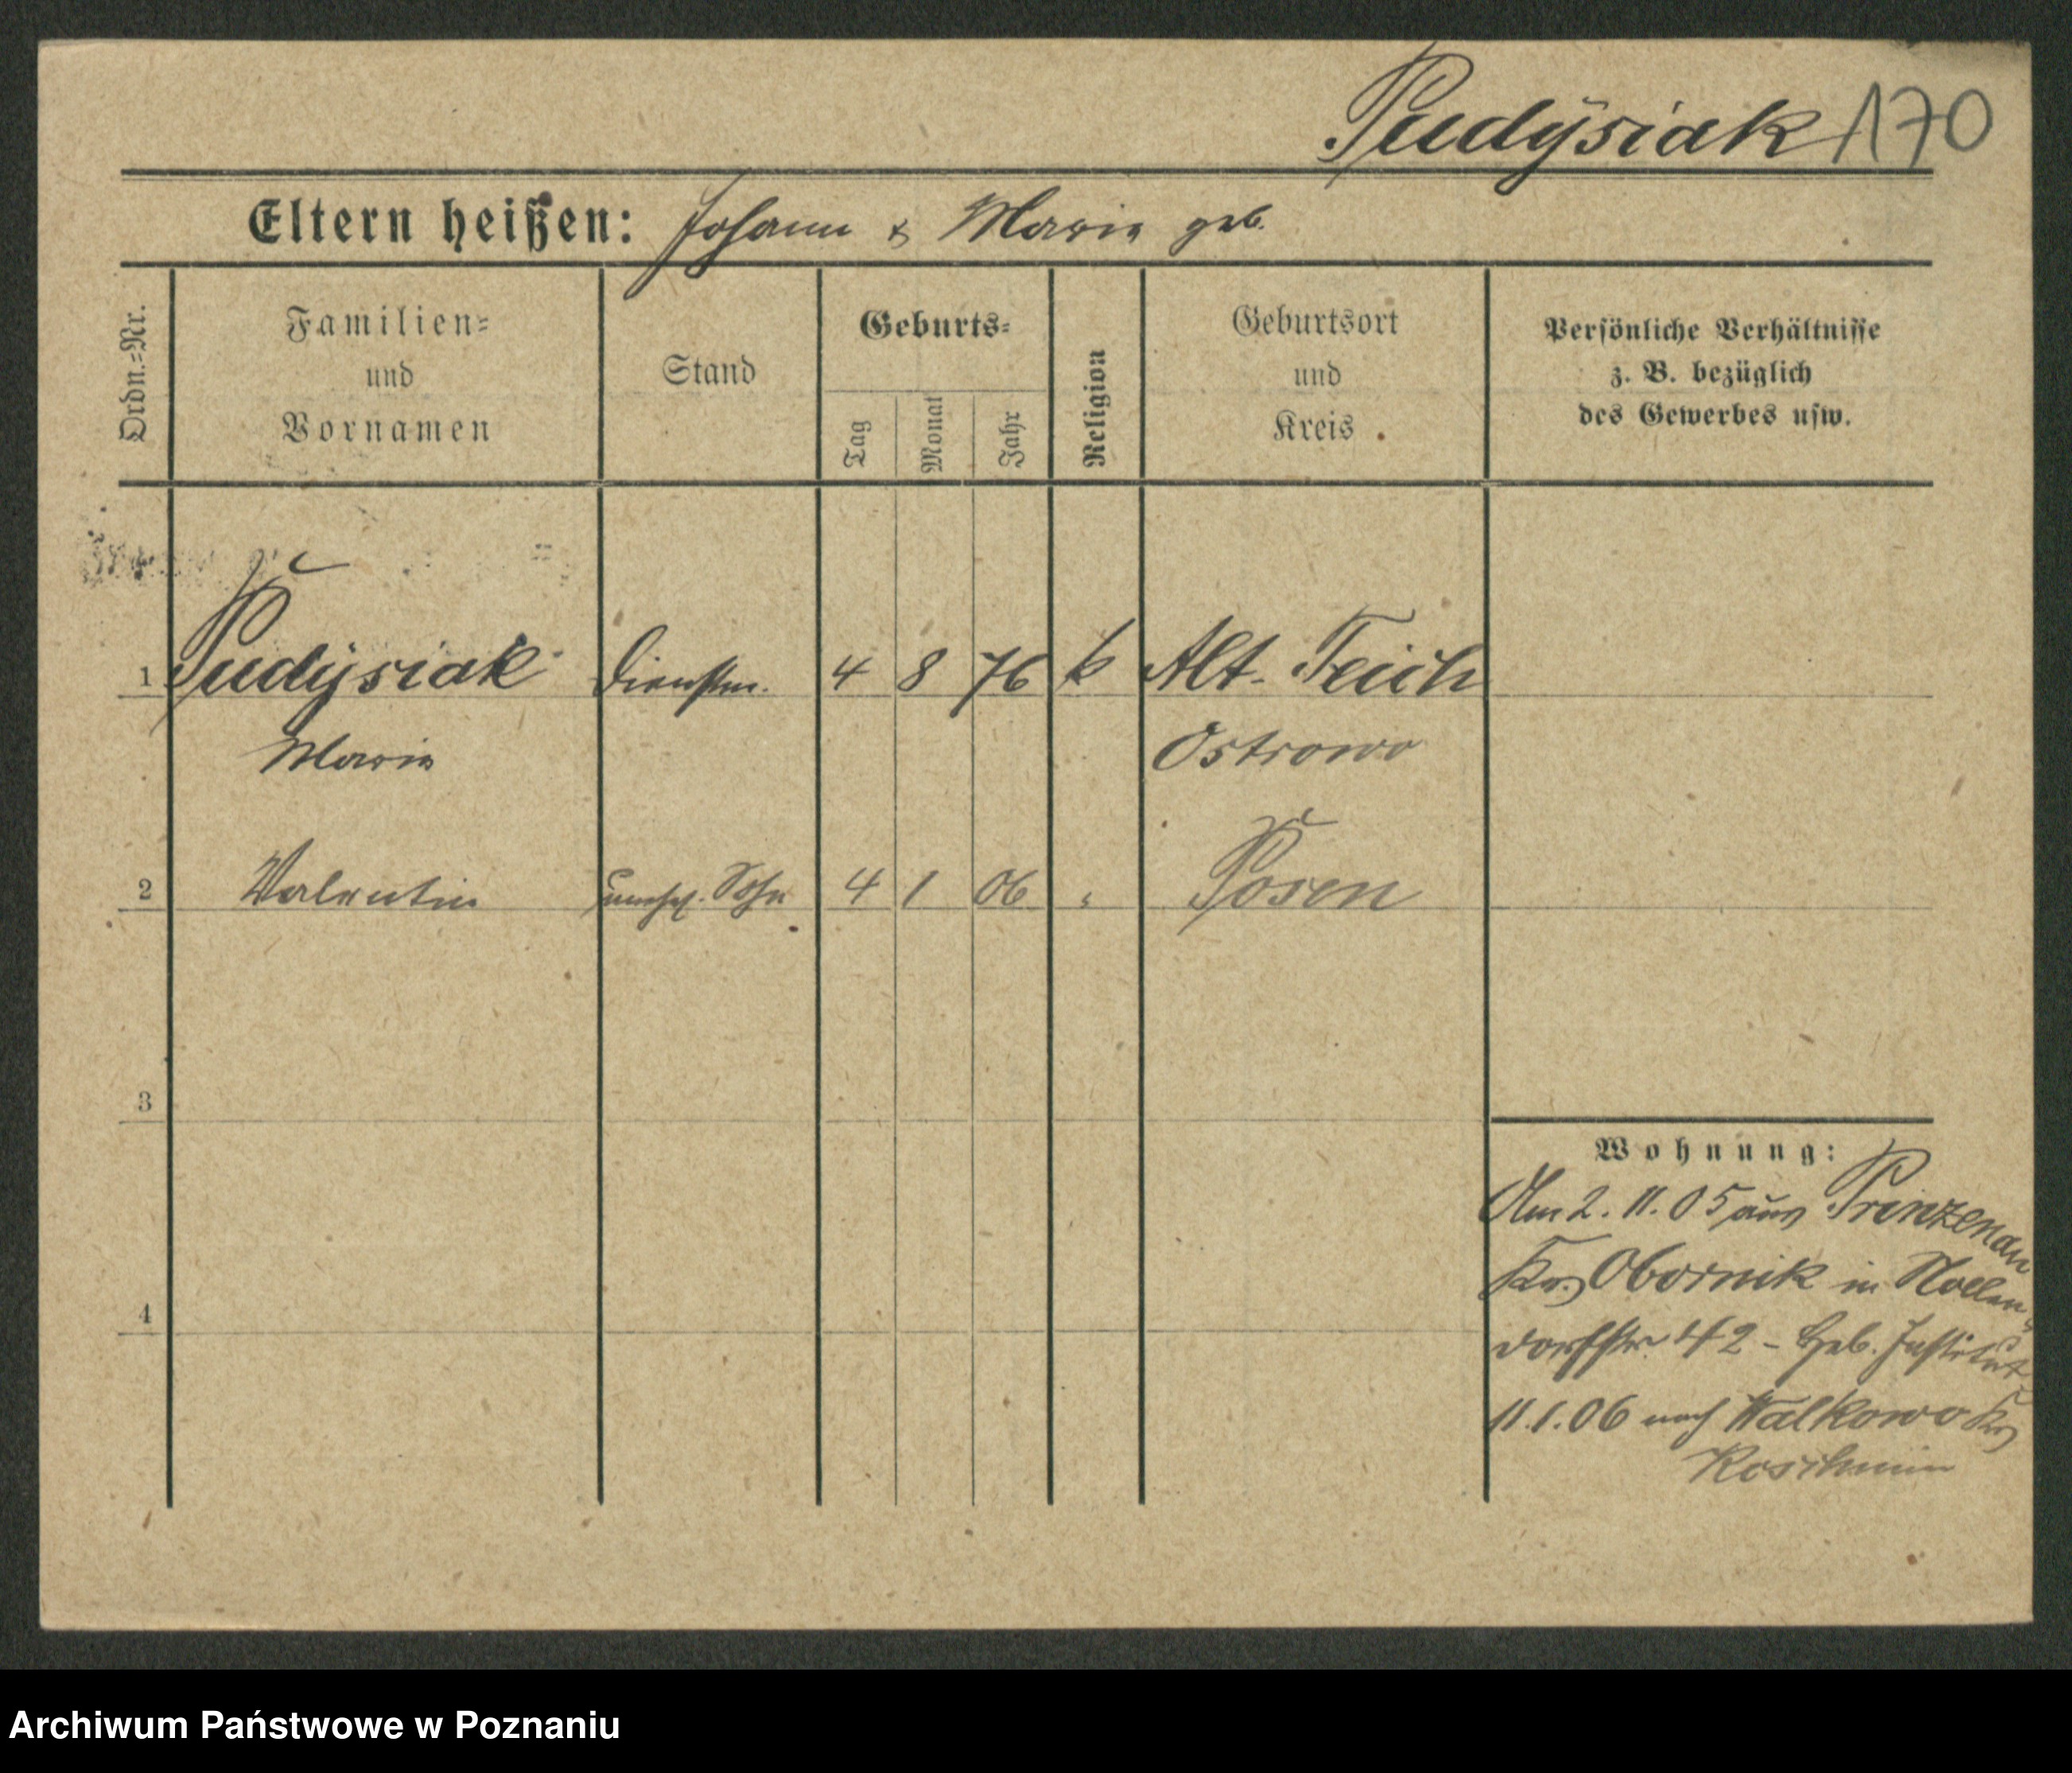 Pudÿsiak 170
Eltern heißen: Johann & Marie geb.
Ordn.=Nr.
Familien=
und
Vornamen
Stand
Geburts=
Tag
Monat
Jahr
Religion
Geburtsort
und
Kreis
Persönliche Verhältnisse
z. B. bezüglich
des Gewerbes usw.
1 Pudÿsiak Dienstm. 4 8 76 k Alt-Teich
Marie Ostrowo
2 Valentin unehel. Sohn 4 1 06 " Posen
3
Wohnung:
Am 2. 11. 05 aus Prinzenau
Krs Obornik in Nollen
4
dorfstr 42 - Heb. Institut
11.1.06 nach Walkowo Krs
Koschmin
Archiwum Państwowe w Poznaniu